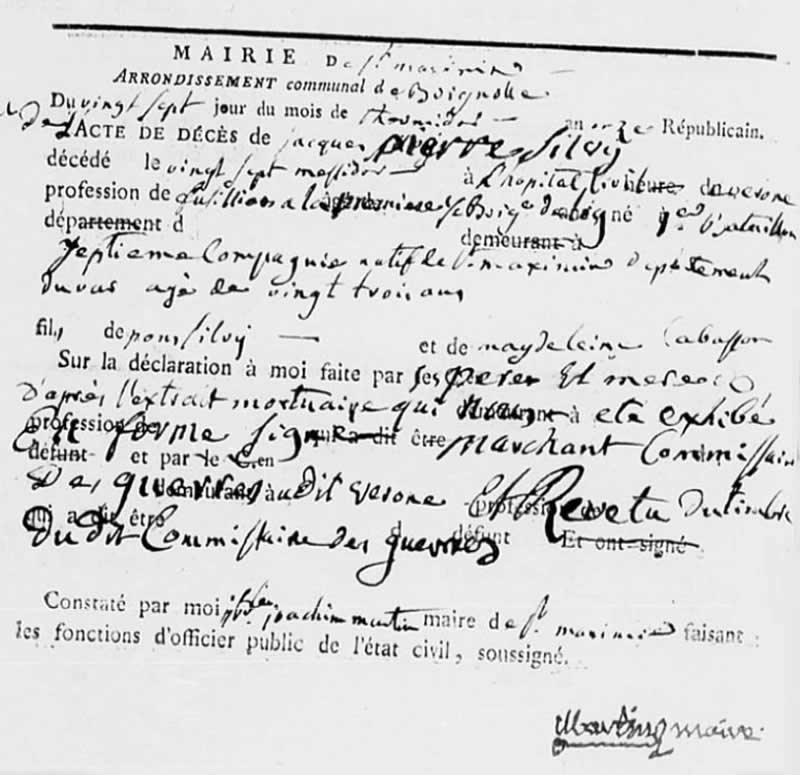 MAIRIE De St. maximin
ARRONDISSEMENT communal de Brignolle
Du vingt sept jour du mois de thermidor an onze Républicain.
De L'ACTE DE DÉCÈS de jacques pierre Silvy
décédé le vingt sept messidor à L'hopital Civil de verone
profession de fusillier a la premiere
département d demeurant à
septieme Compagnie natif de St. maximin département
du var agé de vingt trois ans
fils de pons silvy et de magdeleine Cabasson
Sur la déclaration à moi faite par ses pere et mere
D'aprés L'extrait mortuaire qui nous demeurant à eté exhibé
profession de En forme signé qui a dit être marchant Commissaire
défunt et par le C.en
Des guerres demeurant à audit verone profession de Et Revetu Du timbre
qui a dit être d défunt Et ont signé
Du dit Commissaire des guerres
Constaté par moi joachim martin maire de St. maximin faisant
les fonctions d'officier public de l'état civil, soussigné.
Martin maire